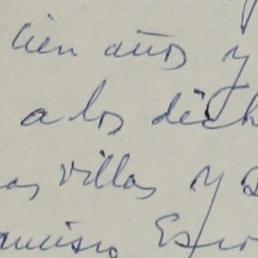 cien años y
a los dich
as villas y
ancisco Espi